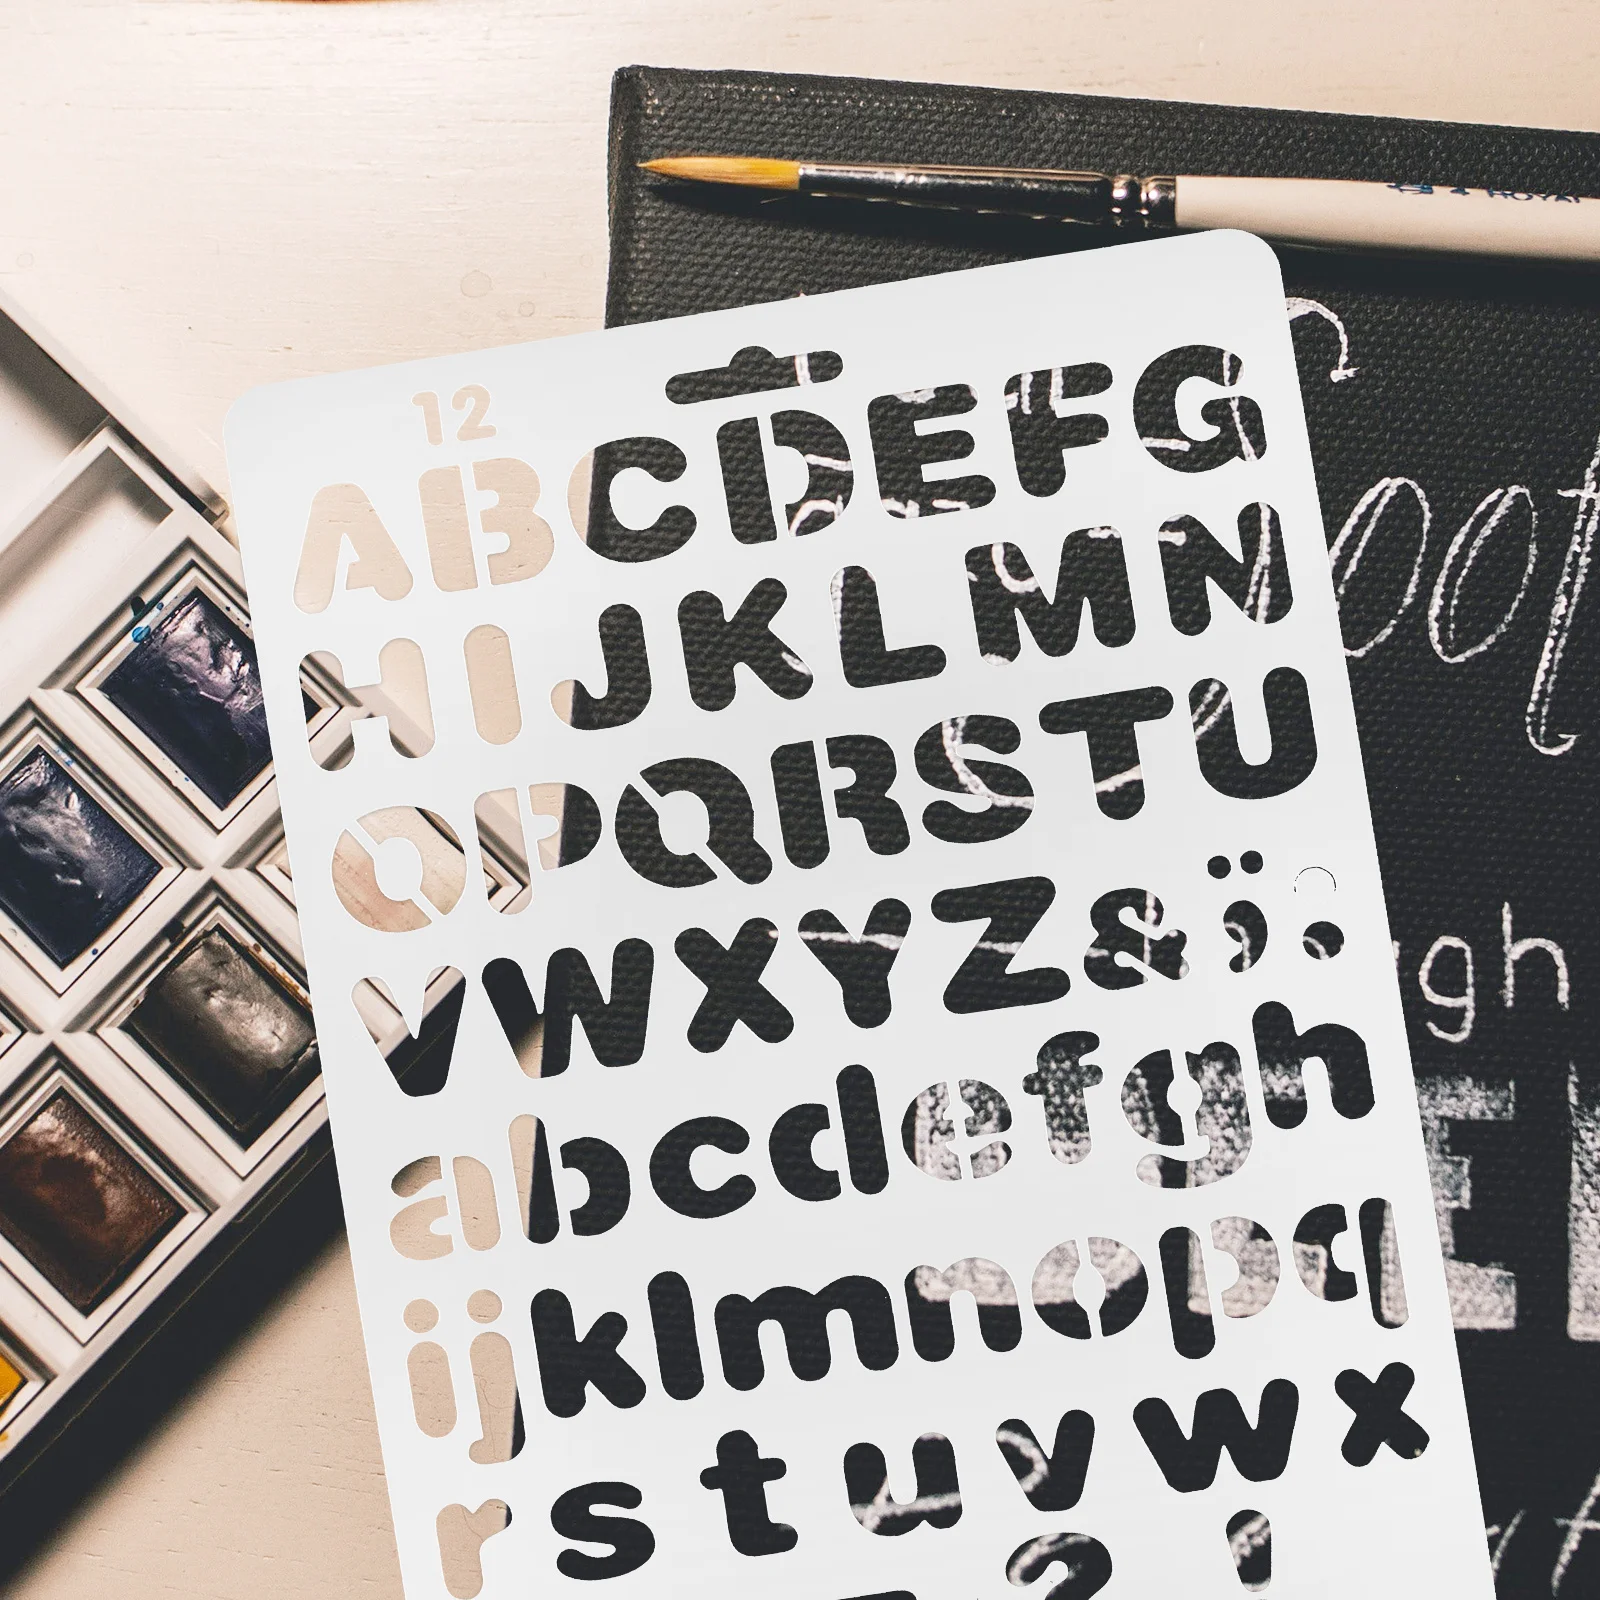 HOYA
12
ABCDEFG
HIJKLMN
OPQRSTU
VWXYZ&
abcdefgh
gh
ijklmnopq
rstuvwx
?!